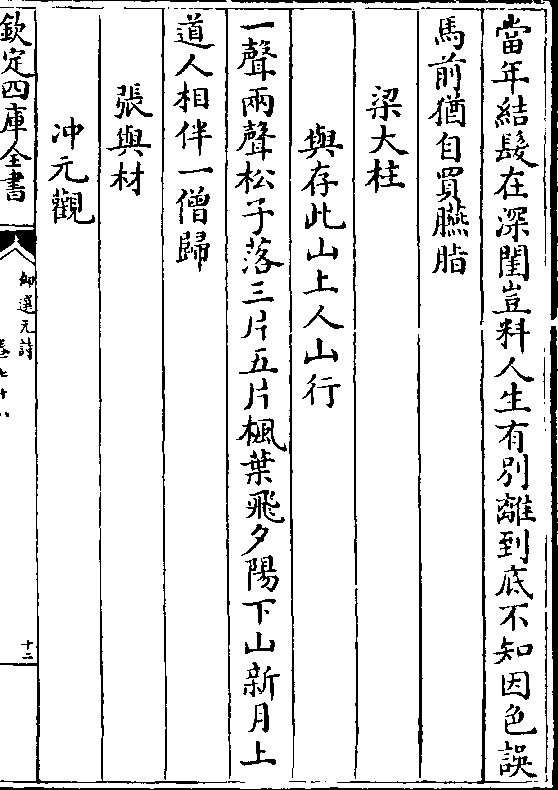 當年結髮在深閨豈料人生有別離到底不知因色誤
馬前猶自買臙脂
梁大柱
與存此山上人山行
一聲兩聲松子落三片五片楓葉飛夕陽下山新月上
道人相伴一僧歸
張與材
沖元觀
欽定四庫全書
御選元詩
卷七十八
十二